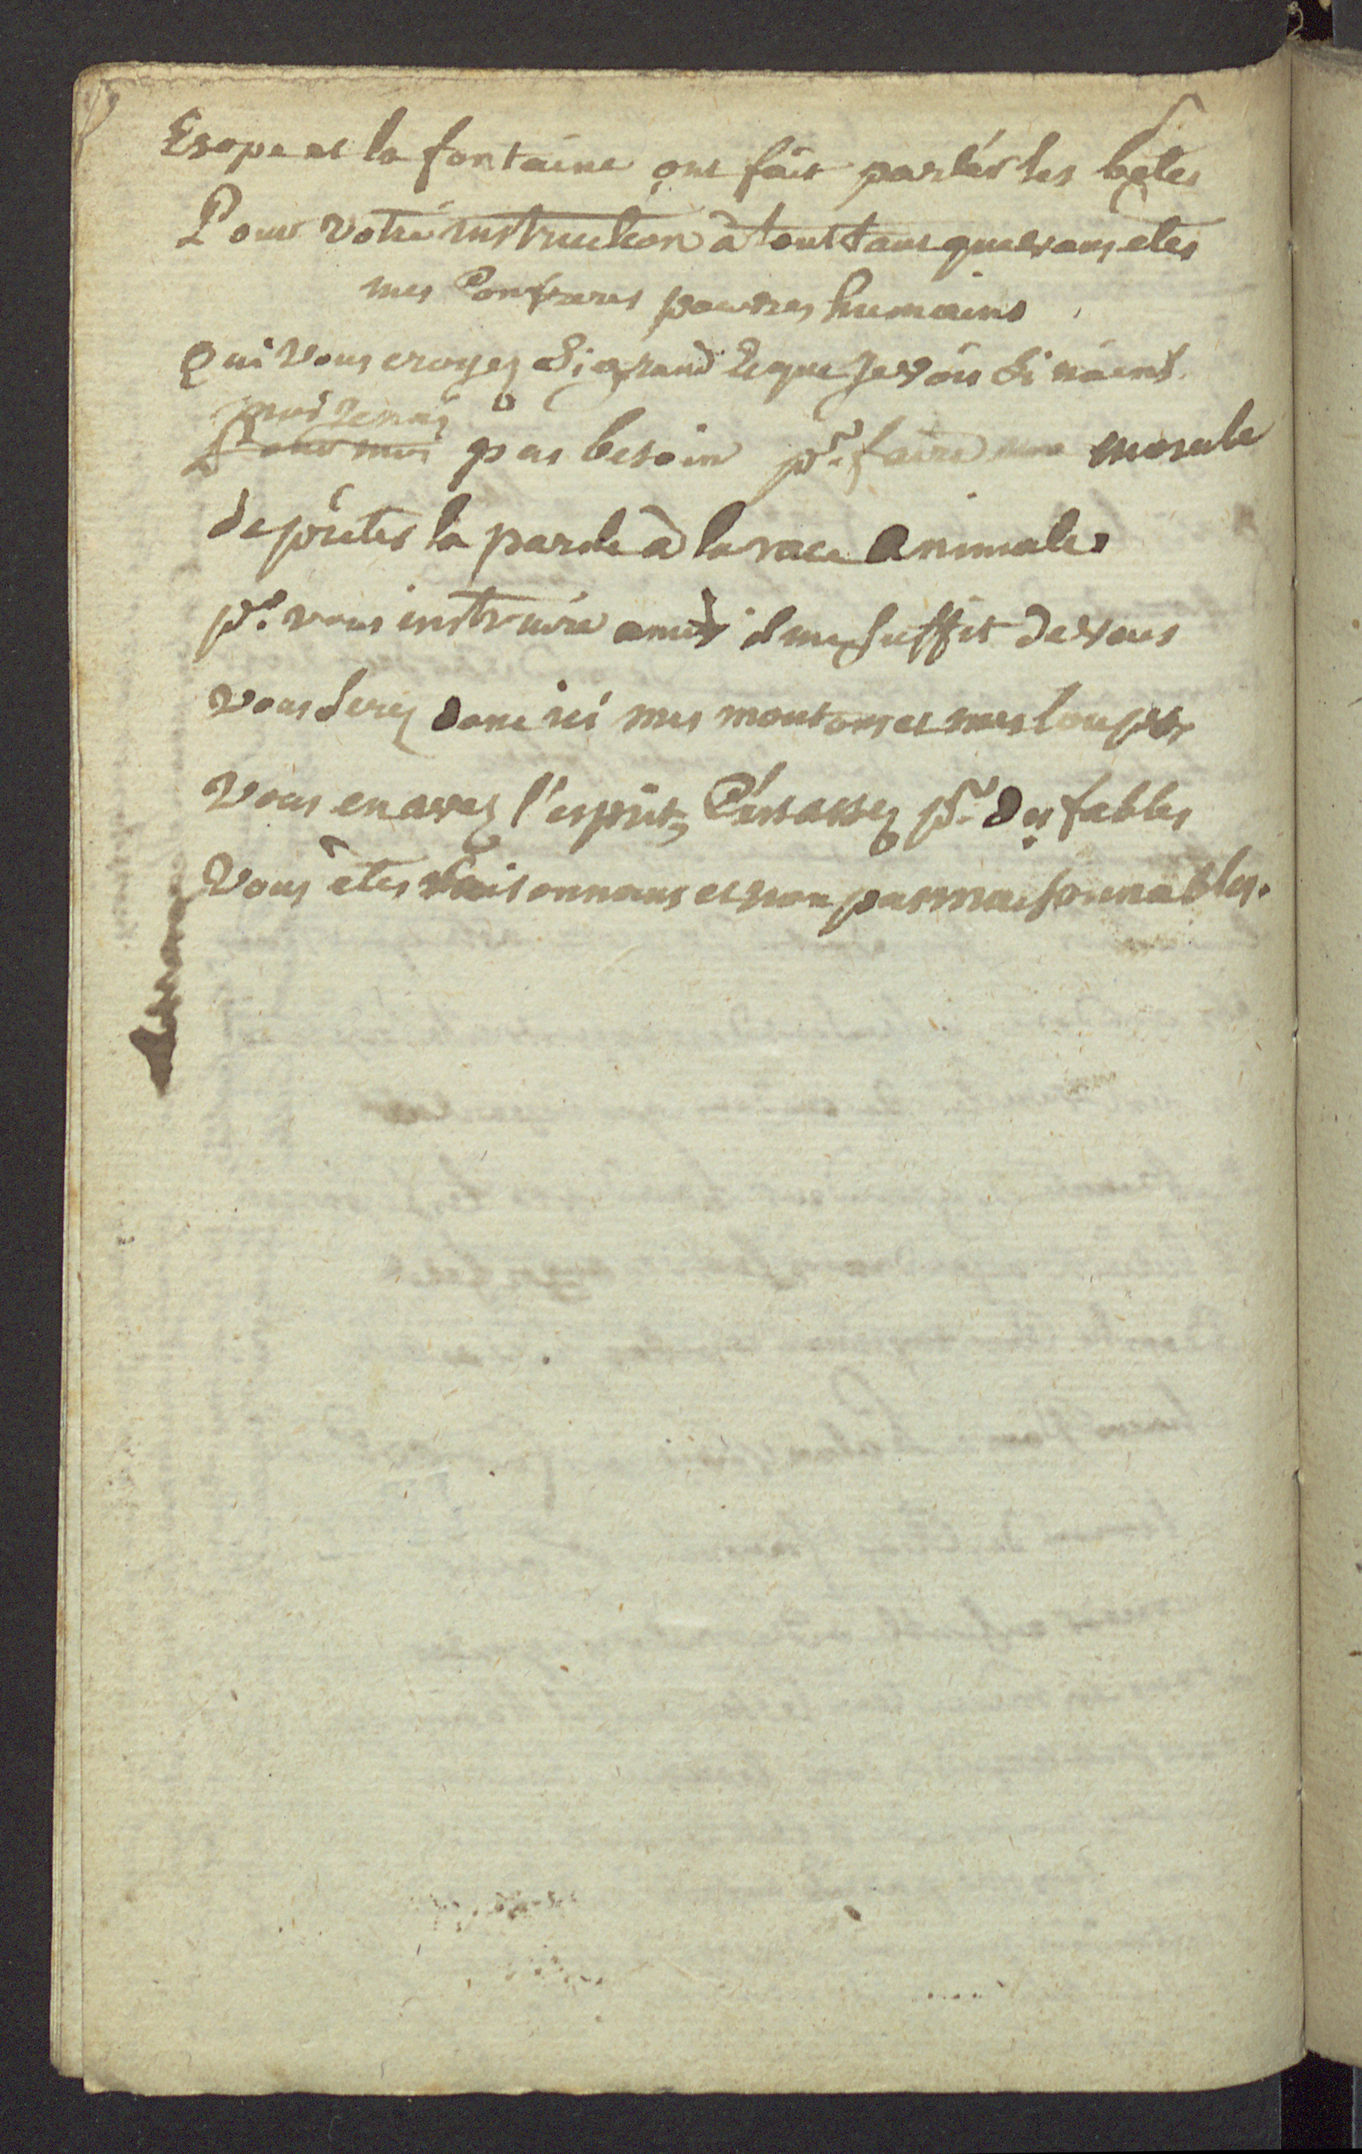 Esope et la fontaine ont fait parlér les bêtes
Pour votre instruction à tout tant que vous etes
mes Confreres pauvres humains
Qui vous croyez Si grand & que Je vois Si nains
moi Je n'ai
Pour moi pas besoin pr. faire une morale
de prêter la parole à la race animale.
pr. vous instruire amis il me Suffit de vous
vous Serez donc ici mes moutons et mes loups
Vous en avez l'esprit, C'est assez pr. des fables
Vous êtes raisonnans et non pas raisonnables.